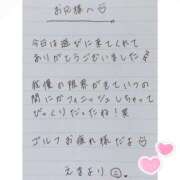 お兄様へ♡
今日は遊びに来てくれて
ありがとうございました
我慢の限界がきていつの
間にかフィニッシュしちゃって
びっくりだったね！笑
ゴルフお疲れ様だよ♡
えまより